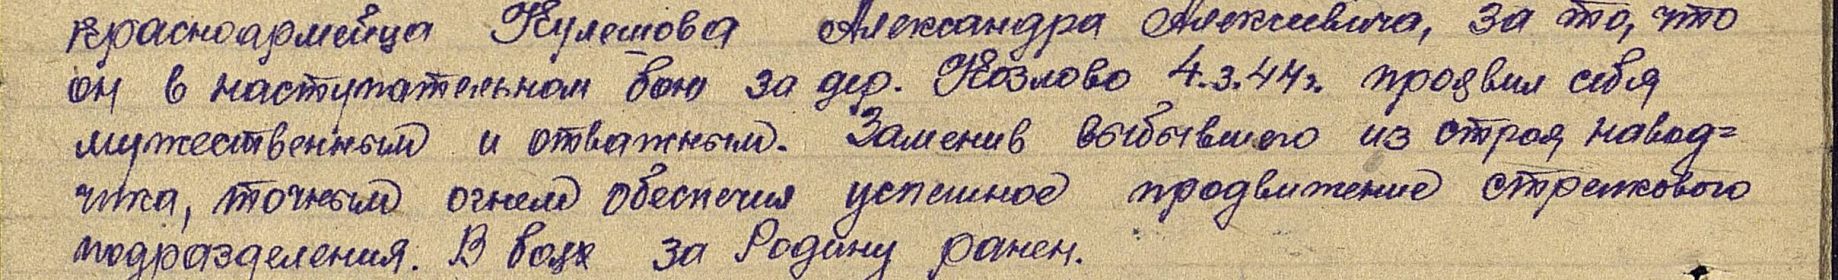 Красноармейца Кулешова Александра Алексеевича, за то, что
он в наступательном бою за дер. Козлово 4.3.44г. проявил себя
мужественным и отважным. Заменив выбывшего из строя навод=
чика, точным огнем обеспечил успешное продвижение стрелкового
подразделения. В боях за Родину ранен.